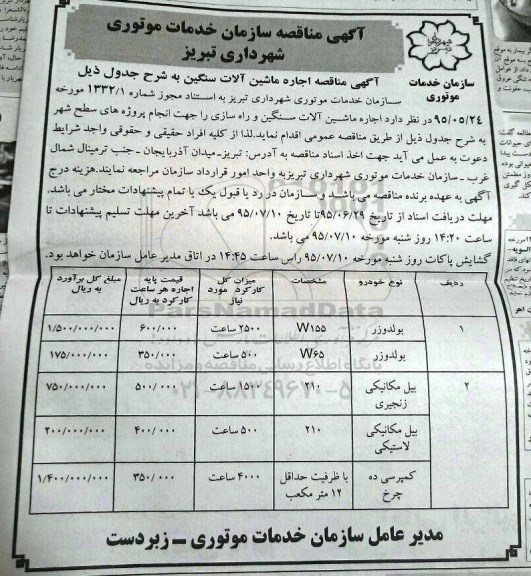 آگهی مناقصه سازمان خدمات موتوری
شهرداری تبریز
سازمان خدمات
موتوری
آگهی مناقصه اجاره ماشین آلات سنگین به شرح جدول ذیل
سازمان خدمات موتوری شهرداری تبریز به استناد مجوز شماره ۱۳۳۲/۱ مورخه
۹۵/۰۵/۲۴ در نظر دارد اجاره ماشین آلات سنگین و راه سازی را جهت انجام پروژه های سطح شهر
به شرح جدول ذیل از طریق مناقصه عمومی اقدام نماید.لذا از کلیه افراد حقیقی و حقوقی واجد شرایط
دعوت به عمل می آید جهت اخذ اسناد مناقصه به آدرس: تبریز-میدان آذربایجان - جنب ترمینال شمال
غرب - سازمان خدمات موتوری شهرداری تبریزبه واحد امور قرارداد سازمان مراجعه نمایند.هزینه درج
آگهی به عهده برنده مناقصه می باشد و سازمان در رد یا قبول یک یا تمام پیشنهادات مختار می باشد.
مهلت دریافت اسناد از تاریخ ۹۵/۰۶/۲۹تا تاریخ ۹۵/۰۷/۱۰ می باشد آخرین مهلت تسلیم پیشنهادات تا
ساعت ۱۴:۲۰ روز شنبه مورخه ۹۵/۰۷/۱۰ می باشد.
گشایش پاکات روز شنبه مورخه ۹۵/۰۷/۱۰ راس ساعت ۱۴:۴۵ در اتاق مدیر عامل سازمان خواهد بود.
ردیف نوع خودرو مشخصات میزان کل کارکرد مورد نیاز قیمت پایه اجاره هر ساعت کارکرد به ریال مبلغ کل برآورد به ریال
۱ بولدوزر W۱۵۵ ۲۵۰۰ ساعت ۶۰۰/۰۰۰ ۱/۵۰۰/۰۰۰/۰۰۰
بولدوزر W۶۵ ۵۰۰ ساعت ۳۵۰/۰۰۰ ۱۷۵/۰۰۰/۰۰۰
۲ بیل مکانیکی زنجیری ۲۱۰ ۱۵۰۰ ساعت ۵۰۰/۰۰۰ ۷۵۰/۰۰۰/۰۰۰
بیل مکانیکی لاستیکی ۲۱۰ ۵۰۰ ساعت ۴۰۰/۰۰۰ ۲۰۰/۰۰۰/۰۰۰
کمپرسی ده چرخ با ظرفیت حداقل ۱۲ متر مکعب ۴۰۰۰ ساعت ۳۵۰/۰۰۰ ۱/۴۰۰/۰۰۰/۰۰۰
ParsNamadData
پایگاه اطلاع رسانی مناقصه و مزایده
۰۲۱-۸۸۳۴۹۶۷۰-۵
مدیر عامل سازمان خدمات موتوری – زبردست